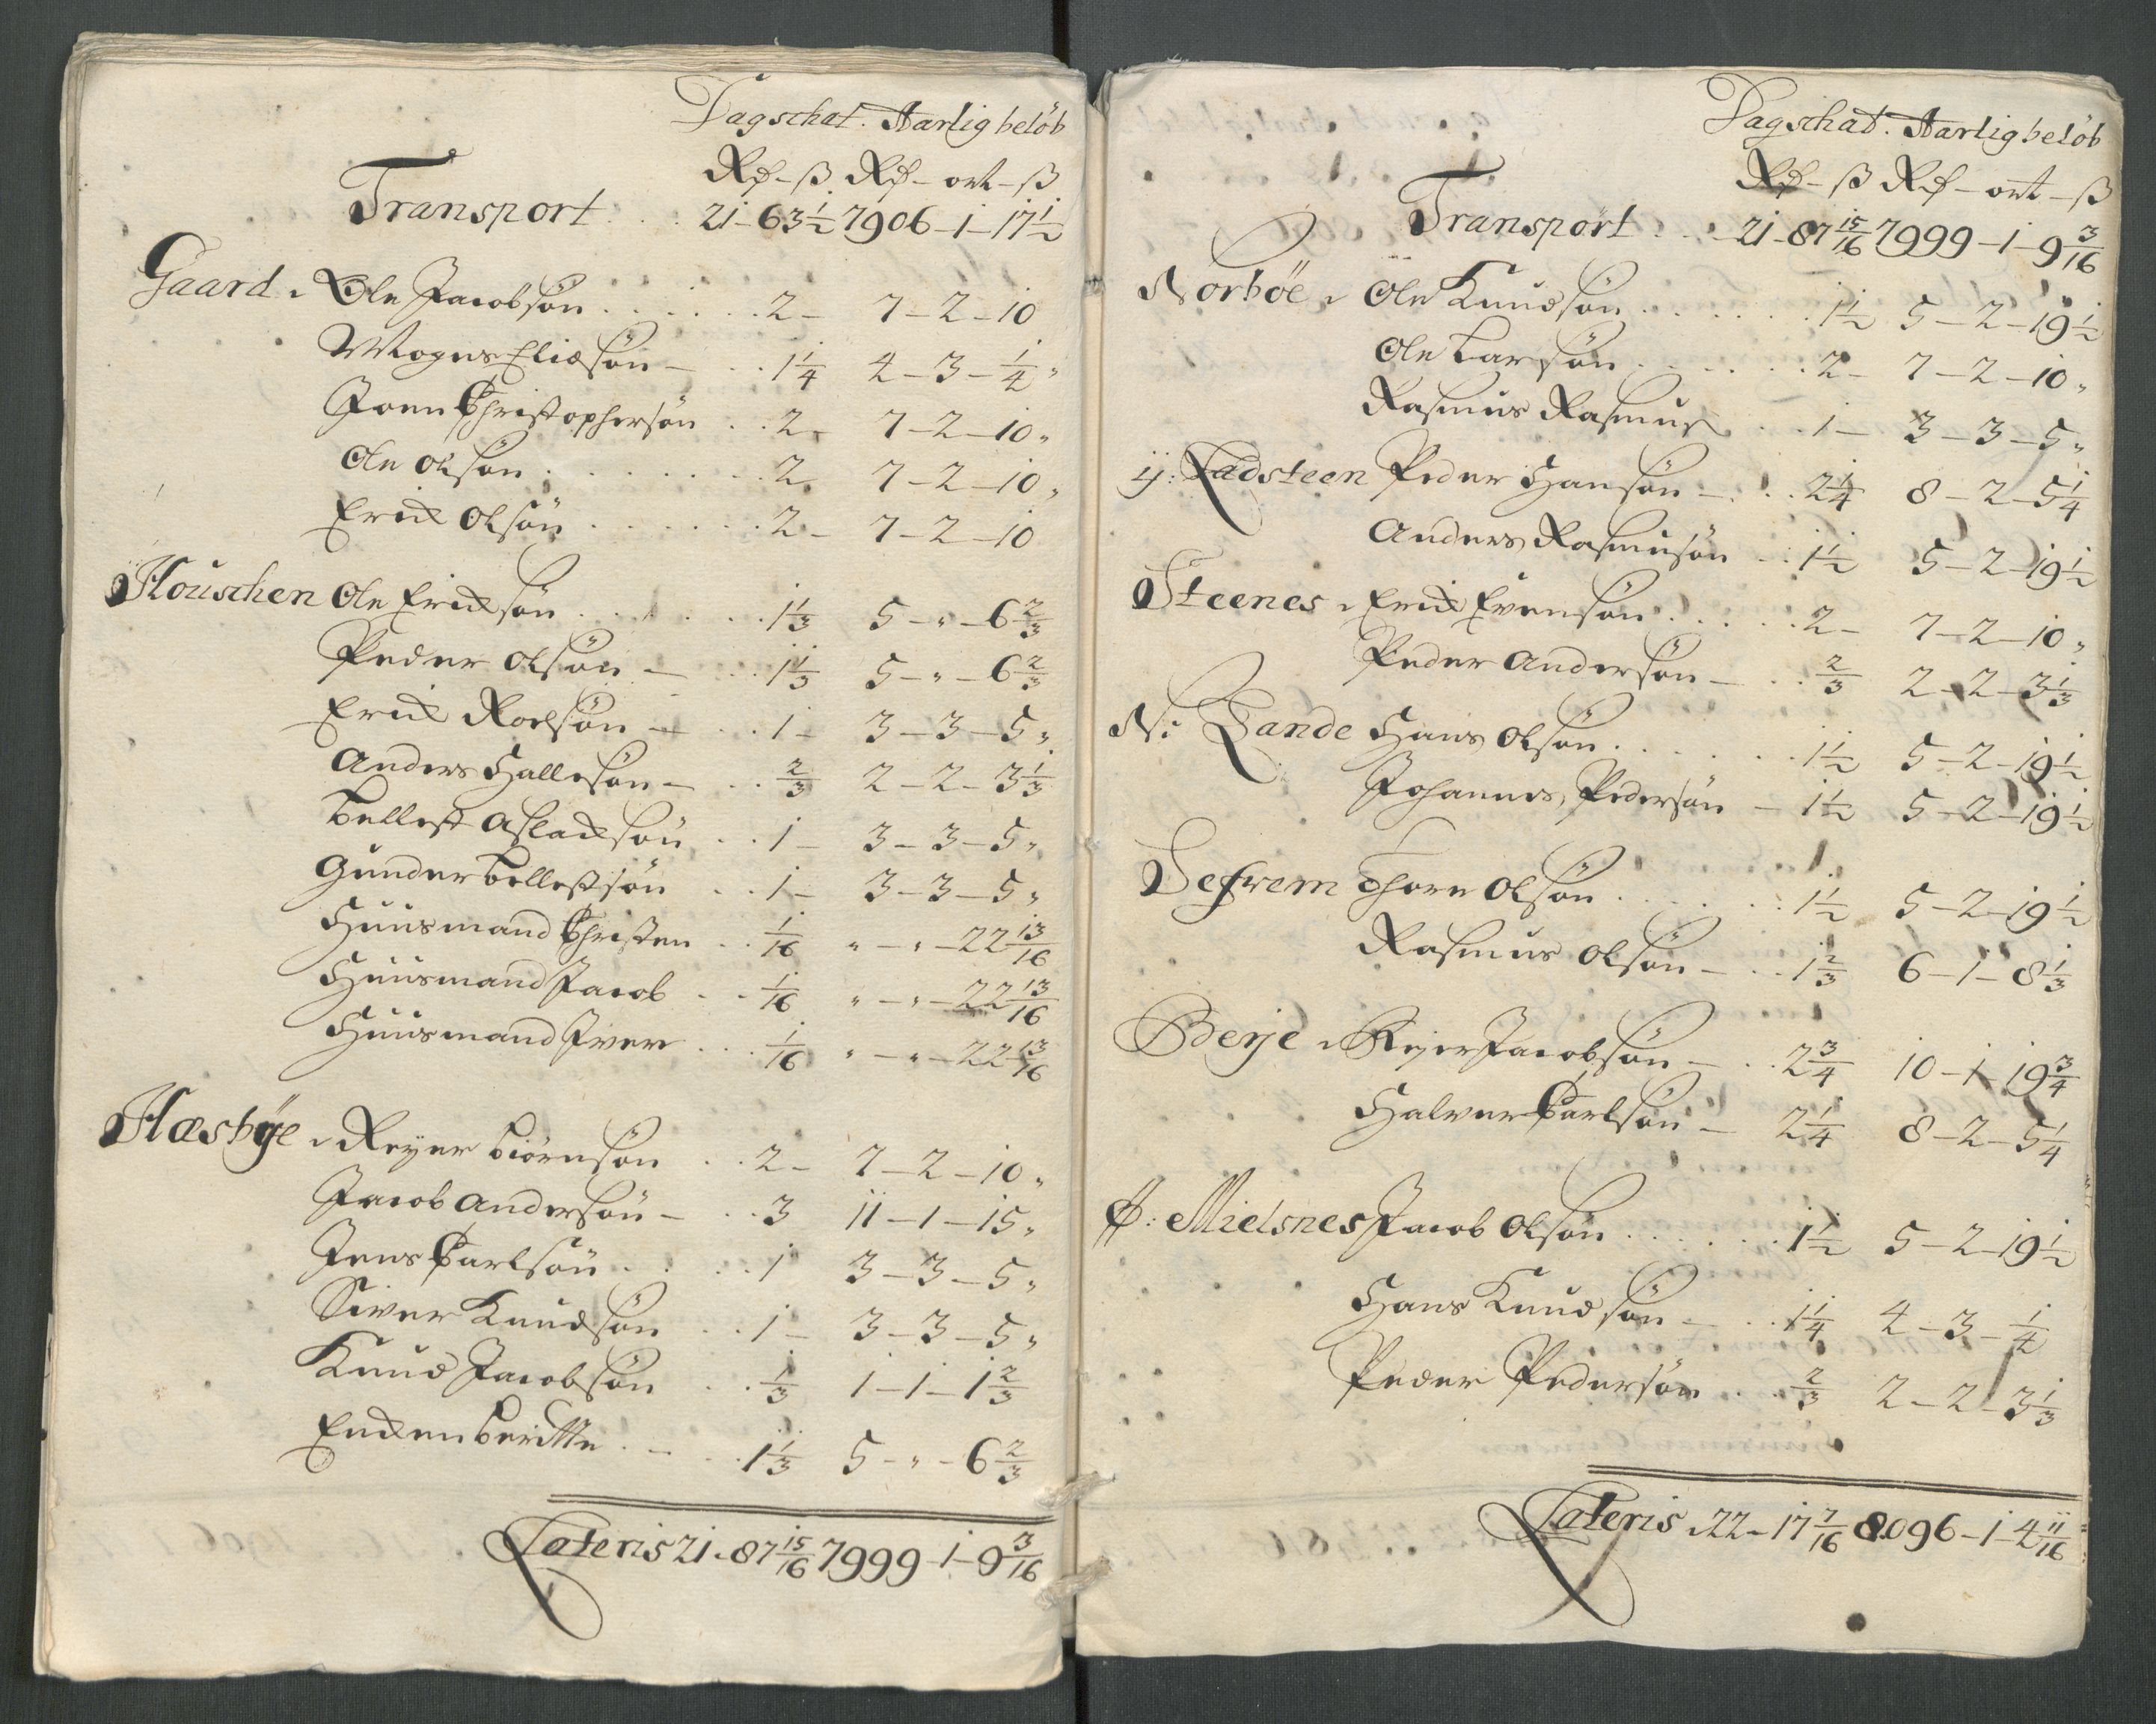 Dagschat. Aarlig belöb
Rd - ß Rd - ort - ß
Transport . . 21 - 63 1/2 7906 - 1 - 17 1/2
Gaard . Ole Jacobsön . . . . . . 2 - 7 - 2 - 10
Mogns Eliæsön - . . 1 1/4 4 - 3 - 1/4 "
Joen Christophersön . . 2 - 7 - 2 - 10 "
Ole Olsön . . . . . . . 2 7 - 2 - 10 "
Erick Olsön . . . . . . 2 - 7 - 2 - 10
Houschen Ole Ericksön . . . . . . 1 1/3 5 - " - 6 2/3
Peder Olsön - . . . 1 1/3 5 - " - 6 2/3
Erick Roelsön - . . . 1 - 3 - 3 - 5 "
Anders Hallesön - . . 2/3 2 - 2 - 3 1/3
Tellest Aslacksön . . 1 - 3 - 3 - 5 "
Gunder Tellestsön . . 1 - 3 - 3 - 5 "
Huusmand Christen . . 1/16 " - " - 22 13/16
Huusmand Jacob . . . 1/16 " - " - 22 13/16
Huusmand Iver . . . 1/16 " - " - 22 13/16
Hæsbÿe . Reyer Biörnsön . . 2 - 7 - 2 - 10 "
Jacob Andersön - . . 3 11 - 1 - 15 "
Jens Carlsön . . . . 1 3 - 3 - 5 "
Siver Knudsön . . 1 - 3 - 3 - 5 "
Knud Jacobsön . . 1/3 1 - 1 - 1 2/3
Encken Beritte . - . . 1 1/3 5 - " - 6 2/3
Lateris 21 - 87 15/16 7999 - 1 - 9 3/16
Dagschat. Aarlig belöb
Rd - ß Rd - ort - ß
Transport . . . 21 - 87 15/16 7999 - 1 - 9 3/16
Norböe . Ole Knudsön . . . . . . 1 1/2 5 - 2 - 19 1/2
Ole Larsön . . . . . . 2 - 7 - 2 - 10 "
Rasmus Rasmus . . 1 - 3 - 3 - 5 "
ÿ: Ladsteen Peder Hansön - . . . 2 1/4 8 - 2 - 5 1/4
Anders Rasmusön . . 1 1/2 5 - 2 - 19 1/2
Steenes . Erick Evensön . . . . . 2 - 7 - 2 - 10 "
Peder Andersön - . . 2/3 2 - 2 - 3 1/3
N: Zande Hans Olsön . . . . . . 1 1/2 5 - 2 - 19 1/2
Johannes Pedersön - 1 1/2 5 - 2 - 19 1/2
Sefrem Thore Olsön . . . . . . 1 1/2 5 - 2 - 19 1/2
Rasmus Olsön - . . 1 2/3 6 - 1 - 8 1/3
Berje . Reyer Jacobsön - . . 2 3/4 10 - 1 - 19 3/4
Halver Carlsön - 2 1/4 8 - 2 - 5 1/4
Mielsnes Jacob Olsön . . . . . . 1 1/2 5 - 2 - 19 1/2
Hans Knudsön - . . 1 1/4 4 - 3 - 1/4
Peder Pedersön . . . 2/3 2 - 2 - 3 1/3
Lateris . 22 - 17 7/16 8096 - 1 - 4 11/16